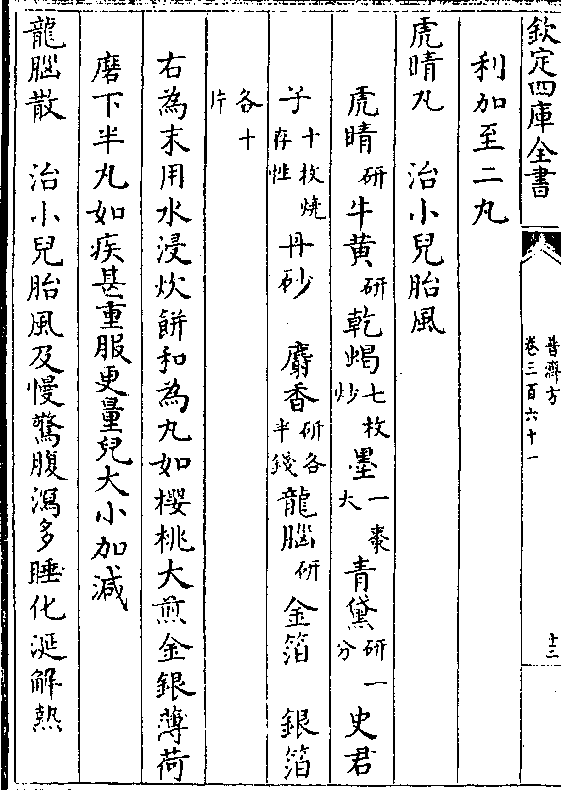 欽定四庫全書
普濟方
卷三百六十一
十三
利加至二丸
虎睛丸　治小兒胎風
虎睛研牛黃研乾蝎七枚炒墨一棗大青黛研一分史君
子十枚燒存性丹砂　麝香研各半錢龍腦研金箔　銀箔
各十片
右為末用水浸炊餅和為丸如櫻桃大煎金銀薄荷
磨下半丸如疾甚重服更量兒大小加減
龍腦散　治小兒胎風及慢驚腹瀉多睡化涎解熱